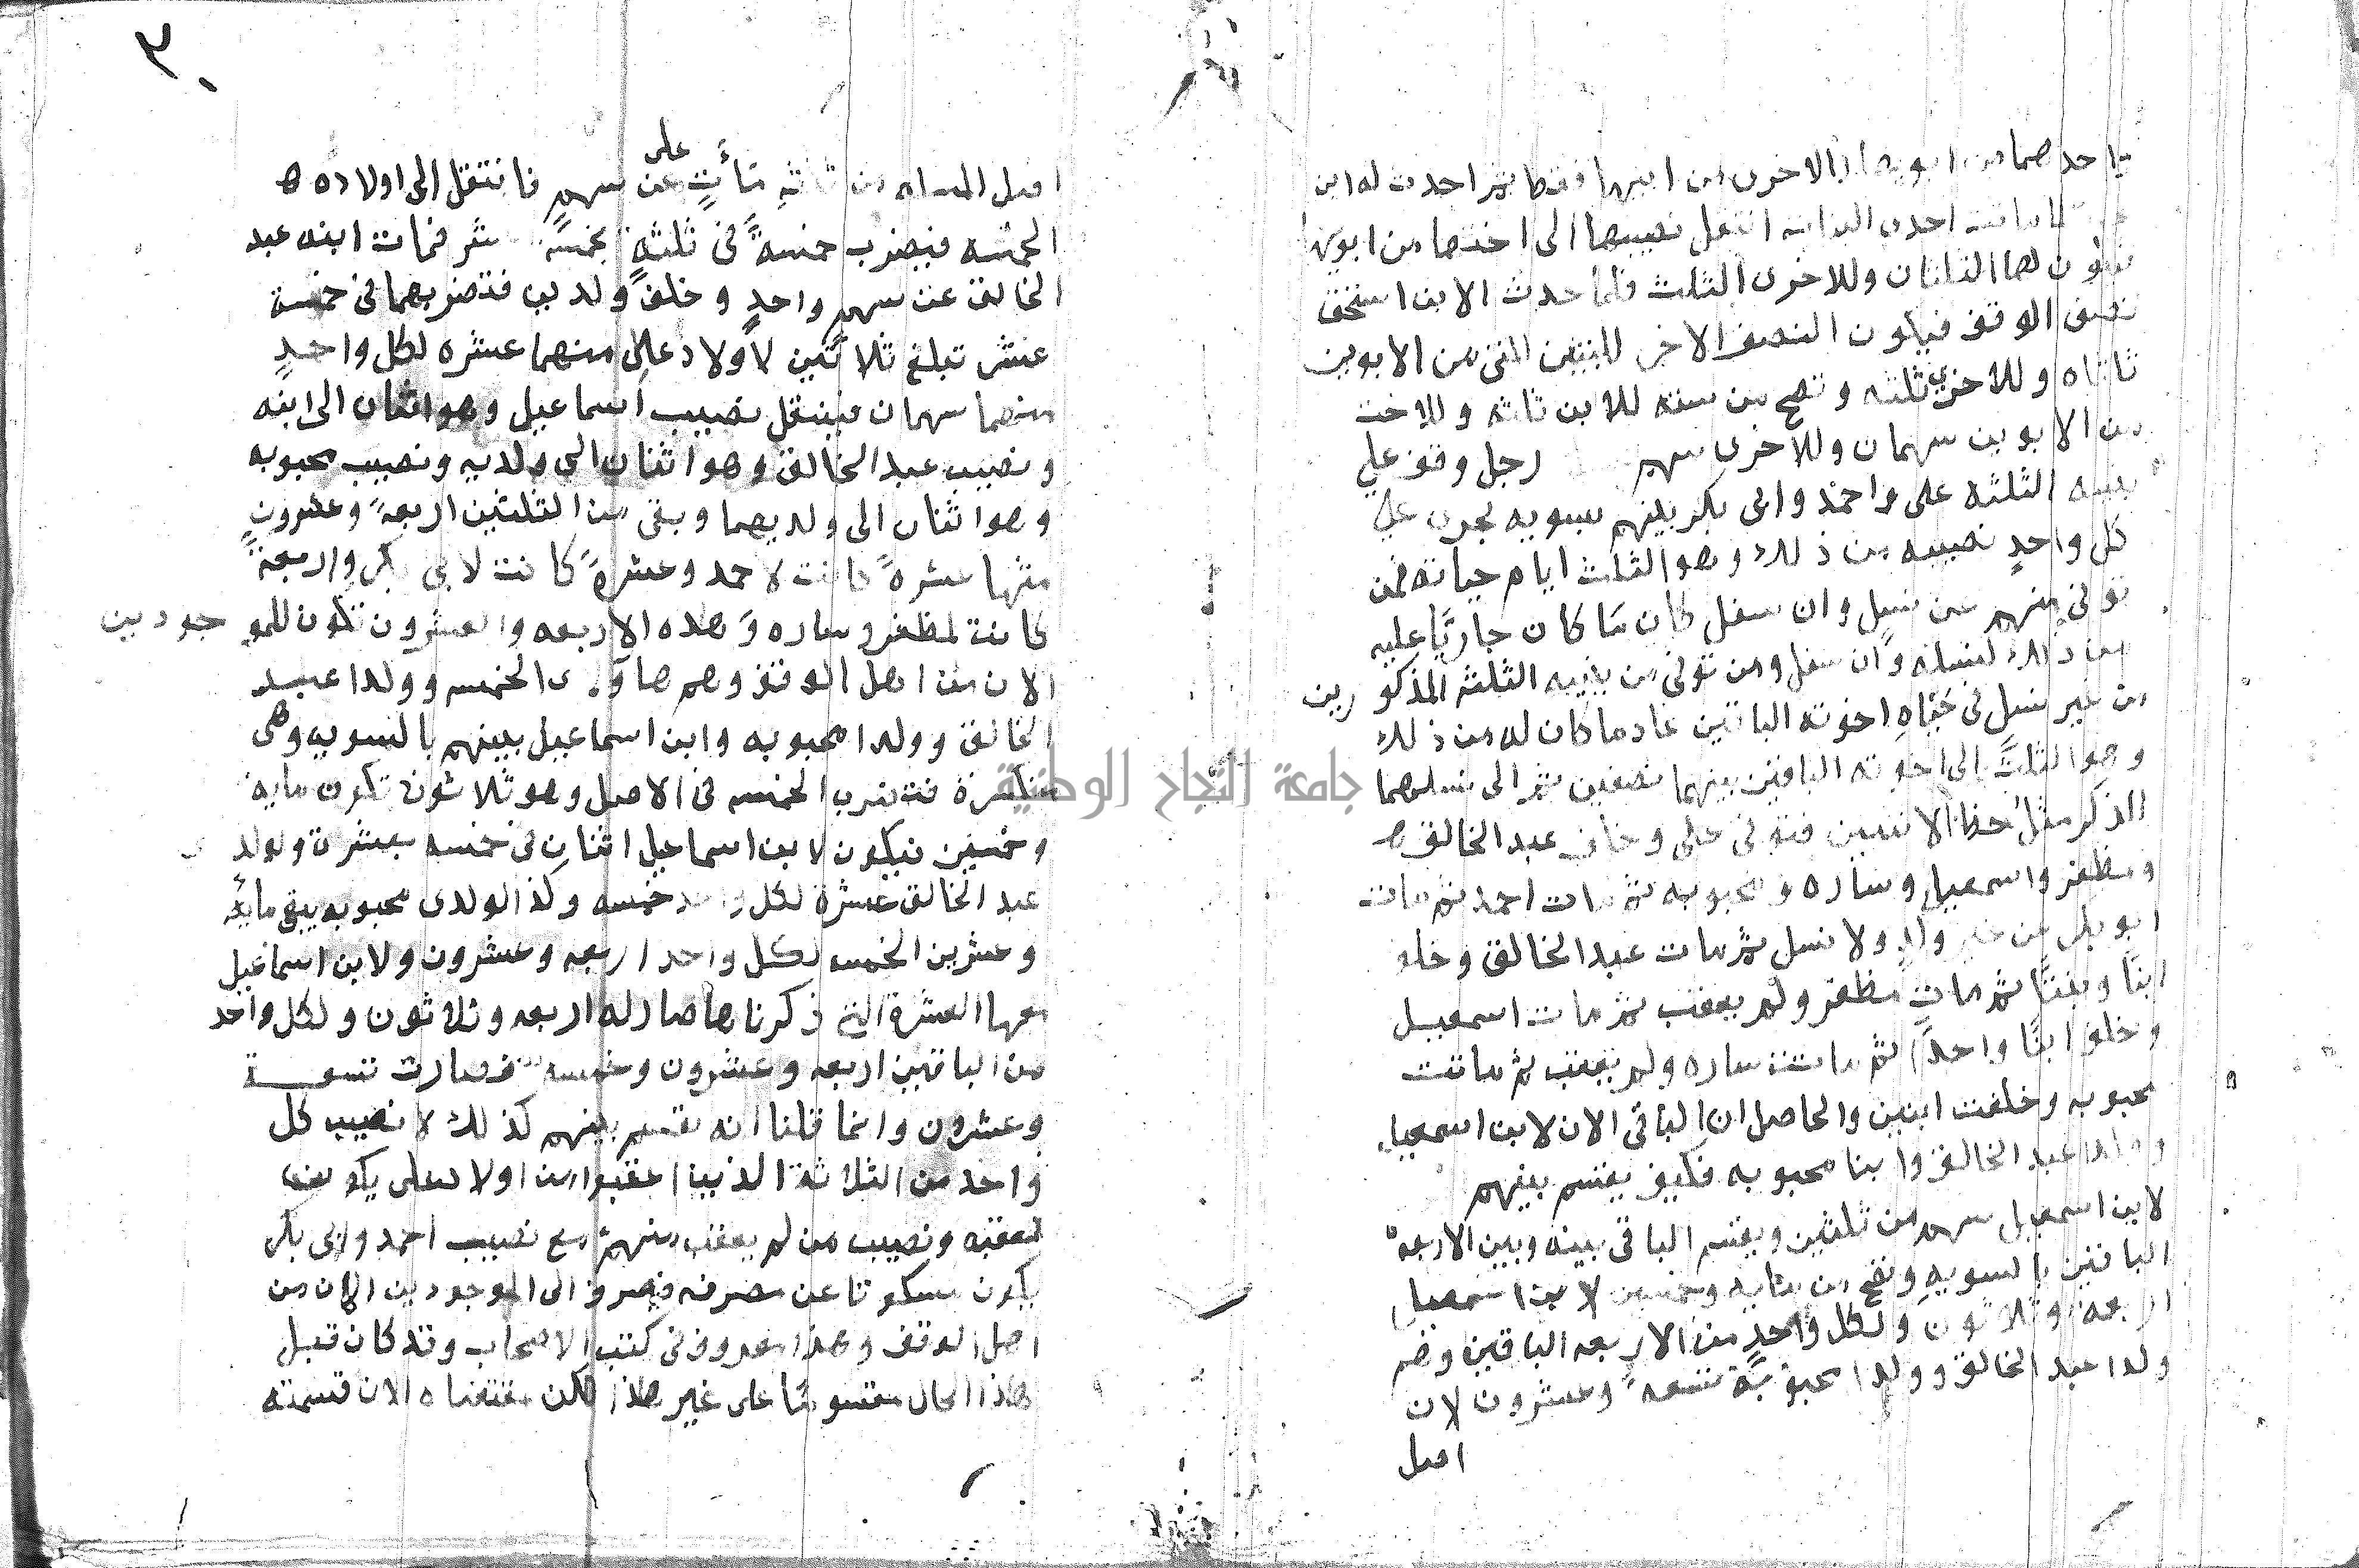 احدهما من ابويها والاخرى من ابيها فقط ثم احدث له ابن
ماتت احدى البنات انتقل نصيبها الى اختها من ابويها
فيكون لها الثلثان وللاخرى الثلث فلما حدث الابن استحق
نصف الوقف فيكون النصف الاخر للبنتين التى من الابوين
ثلثاه وللاخرى ثلثه وتصح من سته للابن ثلثه وللاخت
من الابوين سهمان وللاخرى سهم رجل وقف على
بنيه الثلثه على واحمد وابى بكر بينهم بسويه يجرى على
كل واحدٍ نصيبه من ذلك وهو الثلث ايام حياته فمن
توفى منهم عن نسلٍ وان سفل كان مَا كان جاريًا عليه
من ذلك لنسله وان سفل ومن توفى من بنيه الثلثه المذكورين
من غير نسل فى حَيَاهِ اخوته الباقين عاد ما كان له من ذلك
وهو الثلث الى اخوته الباقين بينهما نصفين ثم الى نسلهما
للذكر مثل حظ الانثيين فتوفى على وخلف عبد الخالق
ومظفر واسمعيل وساره ومحبوبه ثم مات احمد ثم مات
ابو بكر من غير ولدٍ ولا نسل ثم مات عبد الخالق وخلف
ابنًا وبنتًا ثم مات مظفر ولم يعقب ثم مات اسمعيل
وخلف ابنًا واحدًا ثم ماتت ساره ولم تعقب ثم ماتت
محبوبه وخلفت ابنين والحاصل ان الباقى الان لابن اسمعيل
وولدا عبد الخالق وابنا محبوبه فكيف يقسم بينهم
لابن اسمعيل سهم من ثلثين ويقسم الباقى بينه وبين الاربعه
الباقين بالسويه وتصح من مايه وخمسين لابن اسمعيل
اربعة وثلاثون ولكل واحدٍ من الاربعه الباقين وهم
ولدا عبد الخالق وولدا محبوبة تسعه وعشرون لان
اصل
٣٠
اصل المساله من ثلثهِ مَاتَ على عن سهمٍ فانتقل الى اولاده
الخمسه فيضرب خمسهً فى ثلثهٍ بخمسة عشر فمات ابنه عبد
الخالق عن سهمٍ واحدٍ وخلف ولدين فتضربهما فى خمسة
عشر تبلغ ثلاثين لاولاد على منهما عشره لكل واحدٍ
منهما سهمان فينتقل نصيب اسماعيل وهو اثنان الى ابنه
ونصيب عبد الخالق وهو اثنان الى ولديه ونصيب محبوبه
وهو اثنان الى ولديهما وبقى من الثلثين اربعهً وعشرون
منها عشرهً كانت لاحمد وعشرهً كانت لابى بكر واربعهً
كانت لمظفر وساره وَهذه الاربعه والعشرون تكون للموجودين
الان من اهل الوقف وهم هاولى الخمسه وولدا عبد
الخالق وولدا محبوبه وابن اسماعيل بينهم بالسويه وهى
منكسرة فتضرب الخمسه فى الاصل وهو ثلاثون تكون مايه
وخمسين فيكون لابن اسماعيل اثنان فى خمسه بعشرة ولولدى
عبد الخالق عشرة لكل واحد خمسه وكذا لولدى محبوبه يبقى مايه
وعشرين الخمسه لكل واحد اربعه وعشرون ولابن اسماعيل
معها العشرة التى ذكرناها صار له اربعه وثلاثون ولكل واحد
من الباقين اربعه وعشرون وخمسه فصارت تسعة
وعشرون وانما قلنا انه يقسم بينهم كذلك لا نصيب كل
واحد من الثلاثة الذين اعقبوا من اولاد على يكون
لعقبه ونصيب من لم يعقب منهم مع نصيب احمد وابى بكر
يكون مسكوتا عن مصرفه فيصرف الى الموجودين الان من
اهل الوقف وهذا معروف فى كتب الاصحاب وقد كان قبل
هذا الحال مقسومًا على غير هذا لكن مقتضاه الان قسمته
جامعة النجاح الوطنية